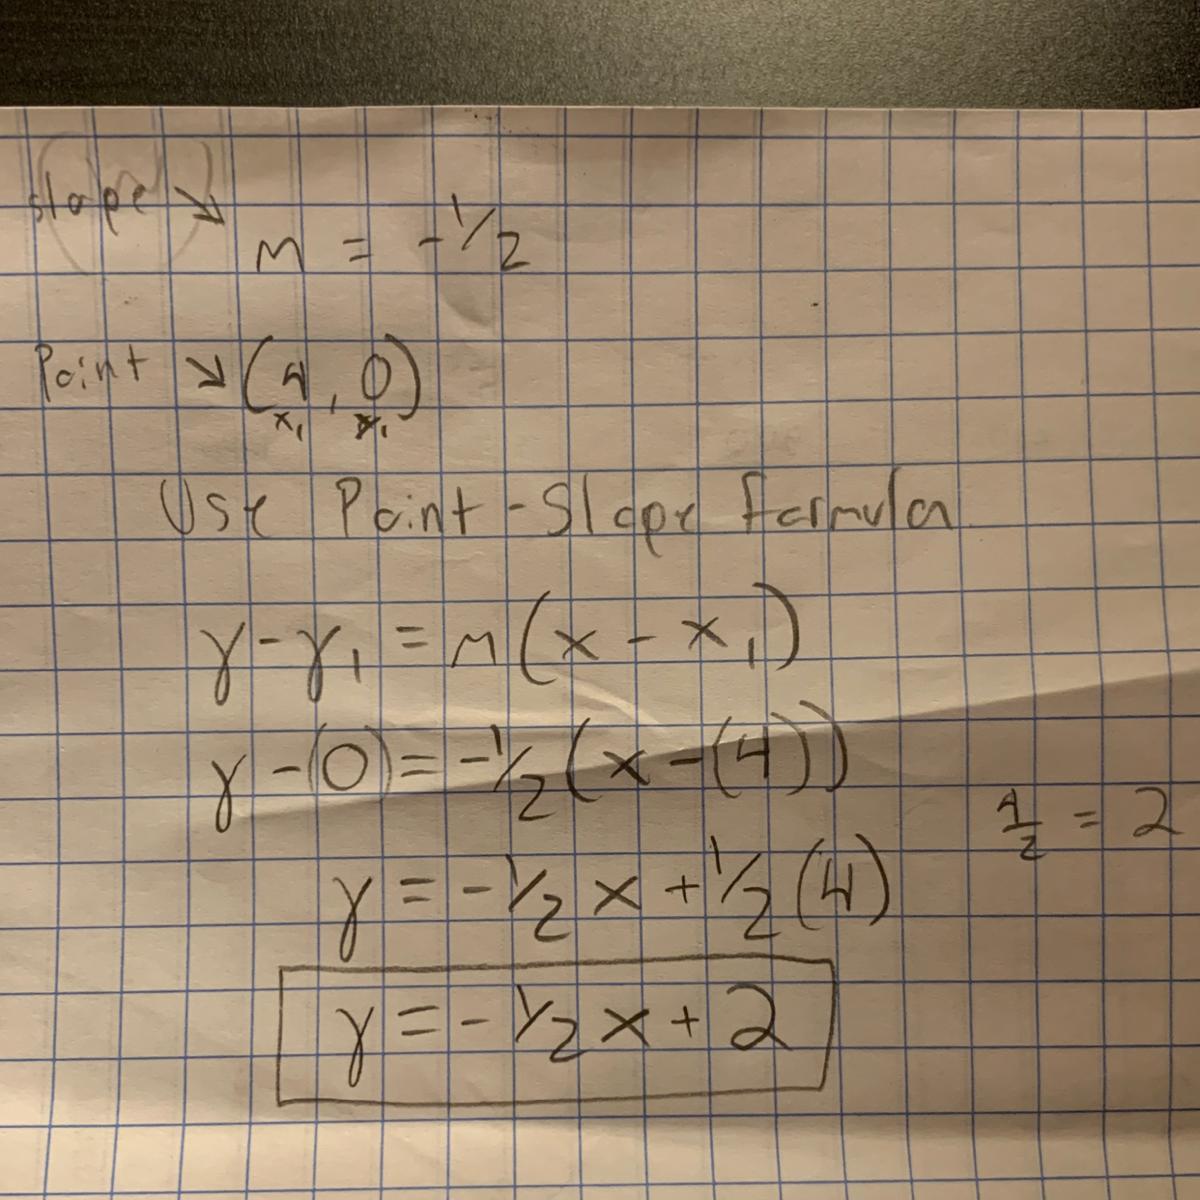 slope ↘
m = -1/2
Point ↘ (4, 0)
x₁ y₁
Use Point-Slope formula
y-y₁ = m(x - x₁)
y-(0) = -1/2(x-(4))
4/2 = 2
y = -1/2 x + 1/2 (4)
y = -1/2 x + 2